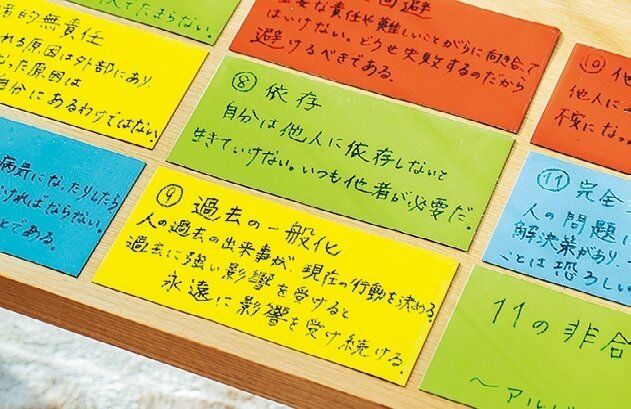 てたまらない。
的無責任
れる原因は外部にあり、
った原因は
自分にあるわけではない。
病気になったりしたら
ければならない。
とである。
回避
重要な責任や難しいことがらに向き合って
はいけない。どうせ失敗するのだから
避けるべきである。
⑧ 依存
自分は他人に依存しないと
生きていけない。いつも他者が必要だ。
⑨ 過去の一般化
人の過去の出来事が、現在の行動を決める。
過去に強い影響を受けると
永遠に影響を受け続ける。
⑩ 他
他人に
不安になっ
⑪ 完全
人の問題に
解決策があり
ことは恐ろしい
11の非合
〜アルバ